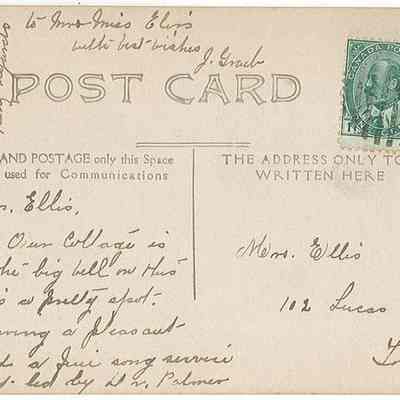 to Mrs Miss Ellis
with best wishes
J. Grab
POST CARD
CANADA PO
AND POSTAGE only this Space
used for Communications
THE ADDRESS ONLY TO
WRITTEN HERE
s. Ellis,
Our Cottage is
the big bell on this
s a pretty spot.
ving a pleasant
a fine song service
led by Dr. Palmer
Mrs. Ellis
102 Lucas